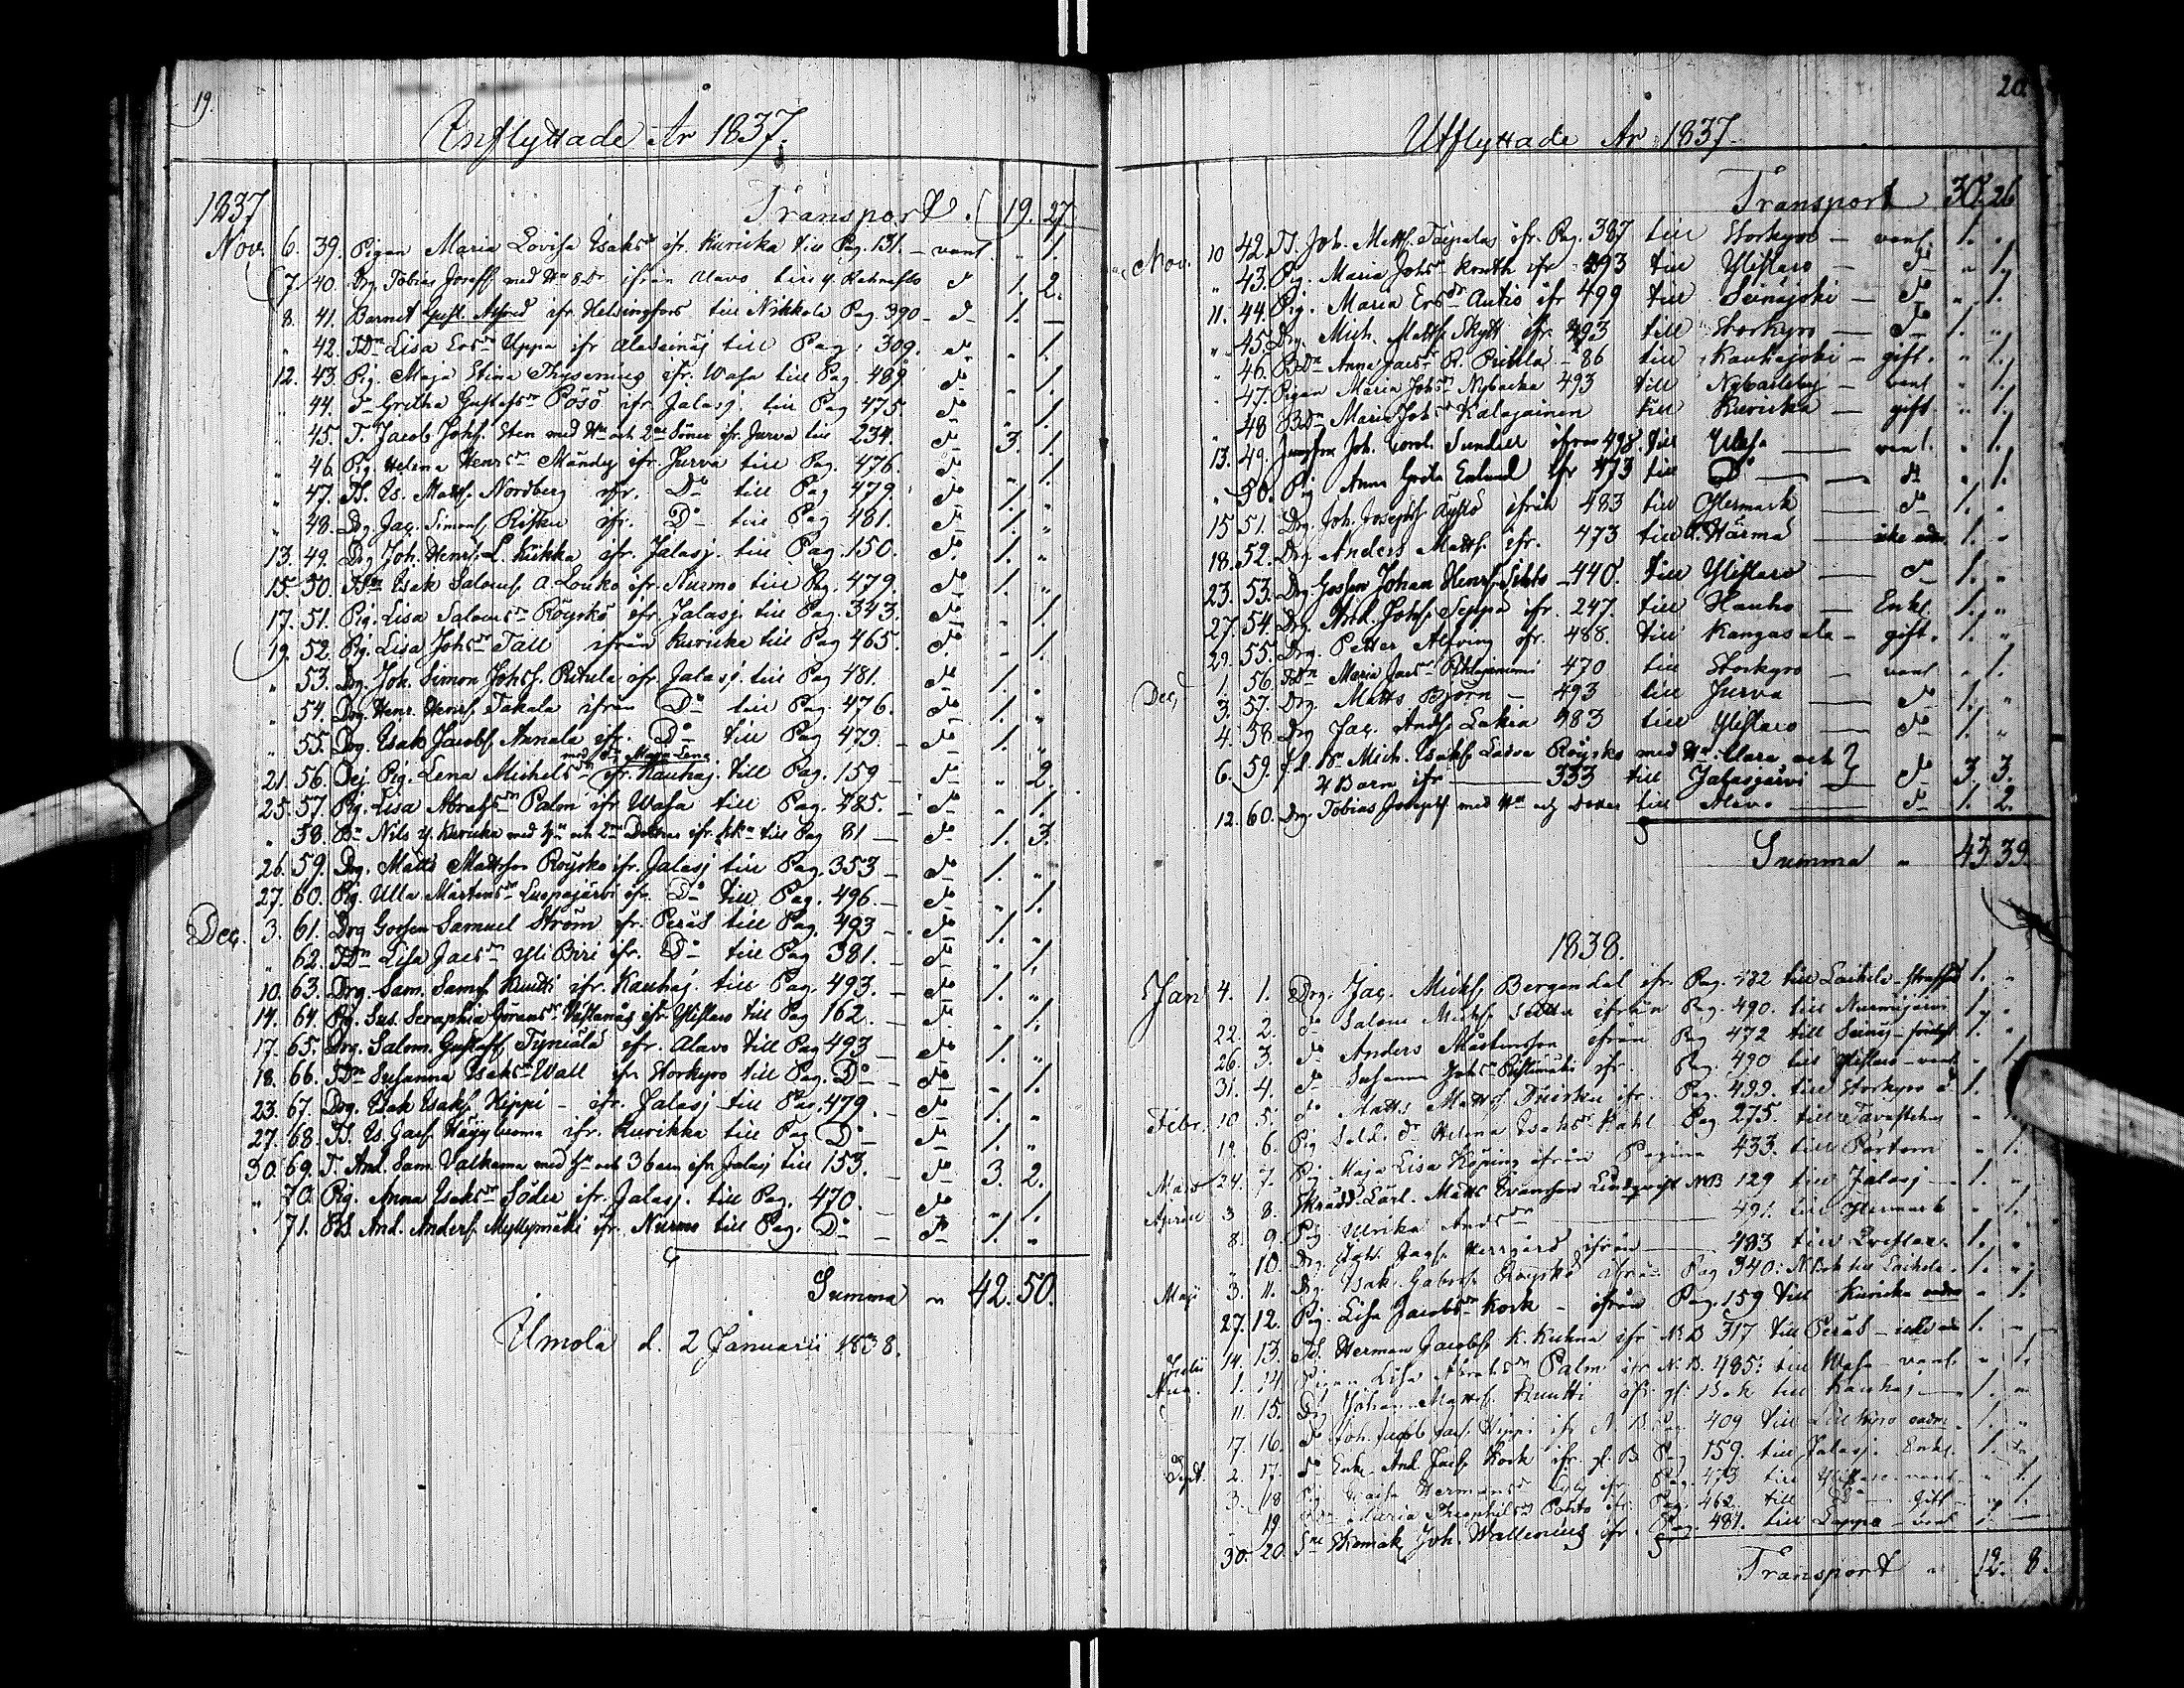 19.
Inflyttade År 1837.
1837 Transport. 19. 27
Nov. 6. 39. Pigan Maria Lovisa Isaksdr ifr. Kuricka till Pag. 131. — vanl. „ 1.
7. 40. Drg. Tobias Joseff. med Hu & Dr ifrån Alavo till Y. do 1. 2.
8. 41. Barnet Gust. Alfred ifr. Helsingfors till Nikkola Pag. 390 — do 1. —
„ 42. TDn Lisa Ersdr Uppa ifr till Pag. 309. do „ 1.
12. 43. Pig. Maja Stina Thysenius ifr. Wasa till Pag. 489 do „ 1.
„ 44. do Gretha Gustafsdr Posö ifr. Jalasj. till Pag 475. do „ 1.
„ 45. T. Jacob Johs. Sten med Hu och 2ne Söner ifr. Jurva till 234. do 3. 1.
„ 46. Pig. Helena Henrsdr Mändy ifr. Jurva till Pag. 476. do „ 1.
„ 47. TS. Is. Matts. Nordberg ifr. Do till Pag 479. do 1. „
„ 48. Dg. Jac. Simons. Risku ifr. Do till Pag 481. do 1. „
13. 49. Dg Joh. Henrs. L. Kukka ifr. Jalasj. till Pag. 150. do 1. „
15. 50. Isak Saloms. A. Louko ifr. Nurmo till Pag. 479. do 1. „
17. 51. Pig. Lisa Salomsdr Röyskö ifr. Jalasj. till Pag. 343. do „ 1.
19. 52. Pig. Lisa Johsdr Tall ifrån Kuricka till Pag 465. do „ 1.
„ 53. Dg. Joh. Simon Johss. Ritula ifr. Jalasj. till Pag 481. do 1. „
„ 54. Drg. Henr. Henrs. Takala ifrån Do till Pag. 476. do 1. „
„ 55. Drg. Isak Jacobs. Annala ifr. Do till Pag 479. — do 1. „
med dr Maja Lena
21. 56. Dej. Pig. Lena Michelsdr ifr. Kauhaj. till Pag. 159 — do „ 2.
25. 57. Pig. Lisa Abrahsdr Palm ifr. Wasa till Pag. 485. — do „ 1.
„ 58. Bn Nils Y. Kuricka med Hu och 2ne Döttrar ifr. till Pag 81 — do 1. 3.
26. 59. Drg. Matts Mattsson Röysko ifr. Jalasj till Pag. 353 — do 1. „
27. 60. Pig. Ulla Mårtensdr Luopajärvi ifr. Do till Pag. 496. — do „ 1.
Dec. 3. 61. Drg Gossen Samuel Ström ifr. Peräs. till Pag. 493 — do 1. „
„ 62. TDn Lisa Jacsdr Yli Biri ifr. Do till Pag 381. — do „ 1.
10. 63. Drg. Sam. Sams. Knuuti ifr. Kauhaj. till Pag. 493. — do 1. „
14. 64. Pig. Sus. Seraphia Göransdr ifr. Ylistaro till Pag 162. — do „ 1.
17. 65. Drg. Salom. Gustafs. Tyniälä ifr. Alavo till Pag 493 — do 1. „
18. 66. TDn Susanna Isaksdr Wall ifr Storkyro till Pag. Do — do „ 1.
23. 67. Drg. Isak Isaks. Hippi — ifr. Jalasj till Pag. 479. — do 1. „
27. 68. TS. Is. Jacs. ifr. Kurikka till Pag Do — do 1. „
30. 69. T. And. Sam. Valkama med Hu och 3 barn ifr. Jalasj till 153. — do 3. 2.
„ 70. Pig. Anna Isaksdr Söder ifr. Jalasj. till Pag. 470. — do „ 1.
„ 71. And. Anders. Myllymäki ifr. Nurmo till Pag. Do — do 1. „
Summa „ 42. 50.
Ilmola d. 2 Januarii 1838.
20
Utflyttade År 1837.
Transport 30. 26
Nov. 10 42. TS. Joh. Matts. Taipalus ifr. Pag. 387 till Storkyro — vanl. 1. „
„ 43. Pig. Maria Johsdr ifr 493 till Ylistaro — do „ 1.
11. 44. Pig. Maria Ersdr Autio ifr 499 till Seinäjoki — do „ 1.
„ 45. Drg. Mich. Matts. Skytt ifr. 493 till Storkyro — do 1. „
„ 46. BDn Anna Jacsdr R. — 86 till Kauhajoki — gift. „ 1.
„ 47. Pigan Maria Johsdr Nybacka 493 till Nykarleby — vanl „ 1.
„ 48 BDn Maria Johsdr Kalajainen till Kuricka — gift „ 1.
13. 49. Jungfru Joh. Carol. Sundell ifrån 498. till Wasa — vanl. „ 1.
„ 50. Pig Anna Greta Enlund ifr 473 till Do — do „ 1.
15 51. Drg. Joh. Josephs. Äystö ifrån 483 till Östermark — do 1. „
18. 52. Drg Anders Matts. ifr. 473 till Härmä — icke adm. 1. „
23. 53. Drg Gossen Johan Henrs. — 440. till Ylistaro — do 1. „
27. 54. Drg. And. Johs. Seppä ifr. 247. till Hauho — Enkl. 1. „
29. 55. Drg. Petter Alfving ifr. 488. till Kangasala — gift. 1. „
Dec. 1. 56. TDn Maria Jacsdr 470 till Storkyro — vanl „ 1.
3. 57. Drg. Matts Björn — 493 till Jurva — do 1. „
4. 58. Drg Jac. Ands. Lakia 383 till Ylistaro — do 1. „
6. 59. Mich. Isaks. Röysko med Hu Clara och
4 Barn ifr — 353 till Jalasjärvi — do 3. 3.
12. 60. Drg. Tobias Josephs med Hu och Dotter till Alavo — do 1. 2.
Summa „ 43. 39.
1838.
Jan 4. 1. Drg. Jac. Michs. Bergendal ifr. Pag. 482 till Laihela 1. „
22. 2. do Salom. Michs. ifrån Pag. 490. till Nurmijärvi 1. „
26. 3. do Anders Mårtensson ifrån Pag 472 till Seinäj. 1. „
31. 4. do Susanna Johsdr ifr. Pag. 490 till Ylistaro — vanl „ 1.
Febr. 10 5. do Matts Matts. ifr. Pag. 499. till Storkyro do 1.
19. 6. Pig Helena Isaksdr Pag 275. till Tavastehus „ 1.
Mars 24. 7. Pig. Maja Lisa Köping ifrån Pagina 433. till Pörtom „ 1.
April 3 8. Skrädd. Lärl. Matts Evansson Lindqvist NB 129 till Jalasj — 1. „
8. 9. Pig Ulrika Andsdr — 491. till Östermark „ 1.
„ 10. Drg. Jacs. Herrgård ifrån — 483 till 1. „
Maji 3. 11. Drg Isak Gabrs. Röyskö ifrån Pag 340. till Laihela. 1. „
27. 12. Pig. Lisa Jacobsdr Kock — ifrån Pag. 159 till Kuricka „ 1.
Julii 14. 13. TS. Herman Jacobs. K. Kuhna ifr N.B 317 till Peräs — 1. „
Aug. 1. 14 Pigan Lisa Abrahsdr Palm ifr N.B. 485. till Wasa — vanl. „ 1.
11. 15. Dg Johan Matts. Knuuti ifr. till Kauhaj — 1. „
17. 16. do Joh. Jacob Jacs. Hippi ifr N.B. 409 till Lillkyro 1. „
Sept. 2. 17. do Enkl. And. Jacs. Kock ifr. gl. B Pag 159. till Jalasj. Enkl. 1. „
3. 18 Pig Caisa Hermansdr ifr. Pag. 473 till Ylistaro vanl — „ 1.
„ 19 Maria Theophilsdr ifr. Pag. 462. till Do — Gift — „ 1.
30. 20. Skomak. Joh. Wallenius ifr. Pag. 481. till Lappo — vanl 1. —
Transport „ 12. 8.